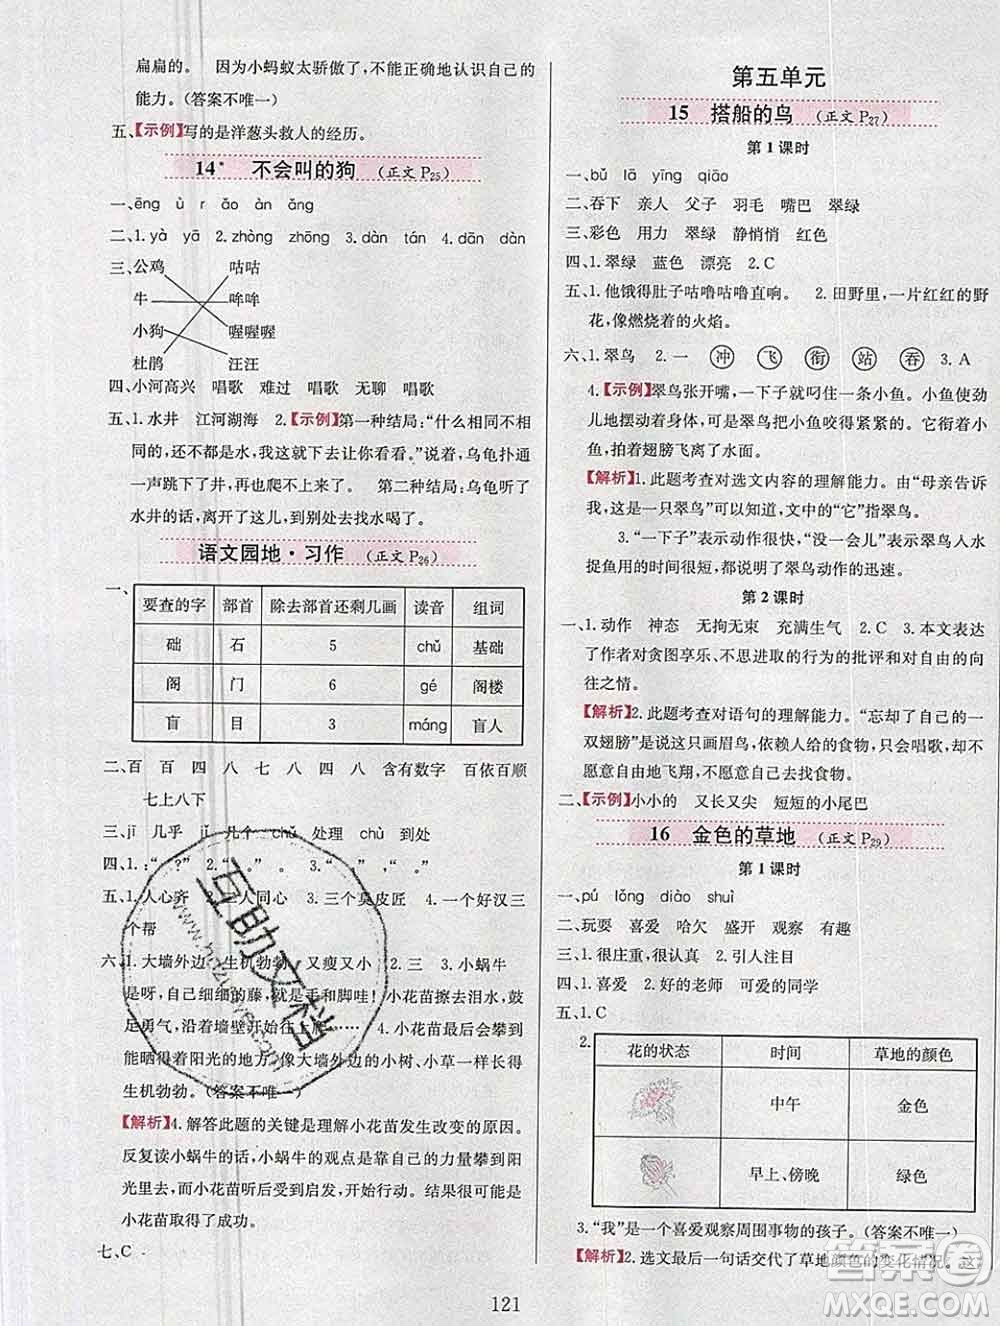 扁扁的。　因为小蚂蚁太骄傲了,不能正确地认识自己的
能力。(答案不唯一)
五、【示例】写的是洋葱头救人的经历。
14*　不会叫的狗　(正文 P25)
一、ēng　ù　r　ǎo　àn　ǎng
二、1.yà　yā　2.zhòng　zhōng　3.dàn　tán　4.dān　dàn
三、公鸡　咕咕
牛　哞哞
小狗　喔喔喔
杜鹃　汪汪
四、小河高兴　唱歌　难过　唱歌　无聊　唱歌
五、1.水井　江河湖海　2.【示例】第一种结局:“什么相同不相
同的。还不都是水,我这就下去让你看看。”说着,乌龟扑通
一声跳下了井,再也爬不上来了。　第二种结局:乌龟听了
水井的话,离开了这儿,到别处去找水喝了。
语文园地·习作　(正文 P26)
一、
要查的字　部首　除去部首还剩几画　读音　组词
础　石　5　chǔ　基础
阁　门　6　gé　阁楼
盲　目　3　máng　盲人
二、百　百　四　八　七　八　四　八　含有数字　百依百顺
七上八下
三、jī　几乎　jǐ　几个　chǔ　处理　chù　到处
四、1.:“　?”　2.“　,”　。　3.“　,”　,“　。”
五、1.人心齐　2.一个好汉　3.三个臭皮匠　4.一个好汉三
个帮
六、1.大墙外边,生机勃勃　又瘦又小　2.三　3.小蜗牛
是呀,自己细细的藤,就是手和脚哇!小花苗擦了泪水,
足勇气,沿着墙壁开始往上爬……　4.小花苗最后攀到
能晒得着阳光的地方,像大墙外边的小树、小草一样长得
生机勃勃。(答案不唯一)
【解析】4.解答此题的关键是理解小花苗发生改变的原因。
反复读小蜗牛的话,小蜗牛的观点是爬得高,努力攀到阳
光里去。小花苗听后受到启发,开始行动。结果很可能是
小花苗取得了成功。
七、C
第五单元
15　搭船的鸟　(正文 P27)
第 1 课时
一、bǔ　lā　yīng　qiāo
二、吞下　亲人　父子　羽毛　嘴巴　翠绿
三、彩色　用力　翠绿　静悄悄　和蔼
四、1.翠绿　蓝色　漂亮　2.C
五、1.他饿得肚子咕噜咕噜直响。　2.田野里,一片红红的野
花,像燃烧着的火焰。
六、1.翠鸟　2.一　冲　飞　衔　站　吞　3.A
4.【示例】翠鸟张开嘴,一下子就叼住一条小鱼。小鱼使劲
儿地摆动着身体,可是翠鸟把小鱼咬得紧紧的。翠鸟叼着小
鱼,拍着翅膀飞离了水面。
【解析】1.此题考查对选文内容的理解能力。由“母亲告诉
我,这是一只翠鸟”可以知道,文中的“它”指翠鸟。
3.“一下子”表示动作很快,“没一会儿”表示翠鸟入水
捉鱼用的时间很短,这些都说明了翠鸟动作的迅速。
第 2 课时
一、1.动作　神态　无拘无束　充满生气　2.C　3.本文表达
了作者对贪图享乐、不思进取的行为的批评和对自由的向
往之情。
【解析】2.此题考查对语句的理解能力。“忘却了自己的一
双翅膀”说明这只画眉鸟,依赖人给的食物,只会唱歌,不愿
到高处自由地飞翔,不愿意自己去找食物。
二、【示例】小小的　又长又尖　短短的小尾巴
16　金色的草地　(正文 P29)
第 1 课时
一、pú　lǒng　diào　shuì
二、玩耍　喜爱　哈欠　盛开　观察　有趣
三、1.很庄重,很认真　2.引人注目
四、1.喜爱　2.好的老师　可爱的同学
五、1.C
2.
花的状态　时间　草地的颜色
中午　金色
早上、傍晚　绿色
3.“我”是一个喜爱观察周围事物的孩子。(答案不唯一)
【解析】2.选文最后一句话交代了草地颜色的变化情况。这
121
互助文档
答案圈
MXQE.COM